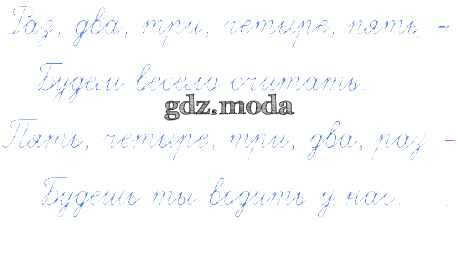 Раз, два, три, четыре, пять –
Будем весело считать.
gdz.moda
Пять, четыре, три, два, раз –
Будешь ты водить у нас.